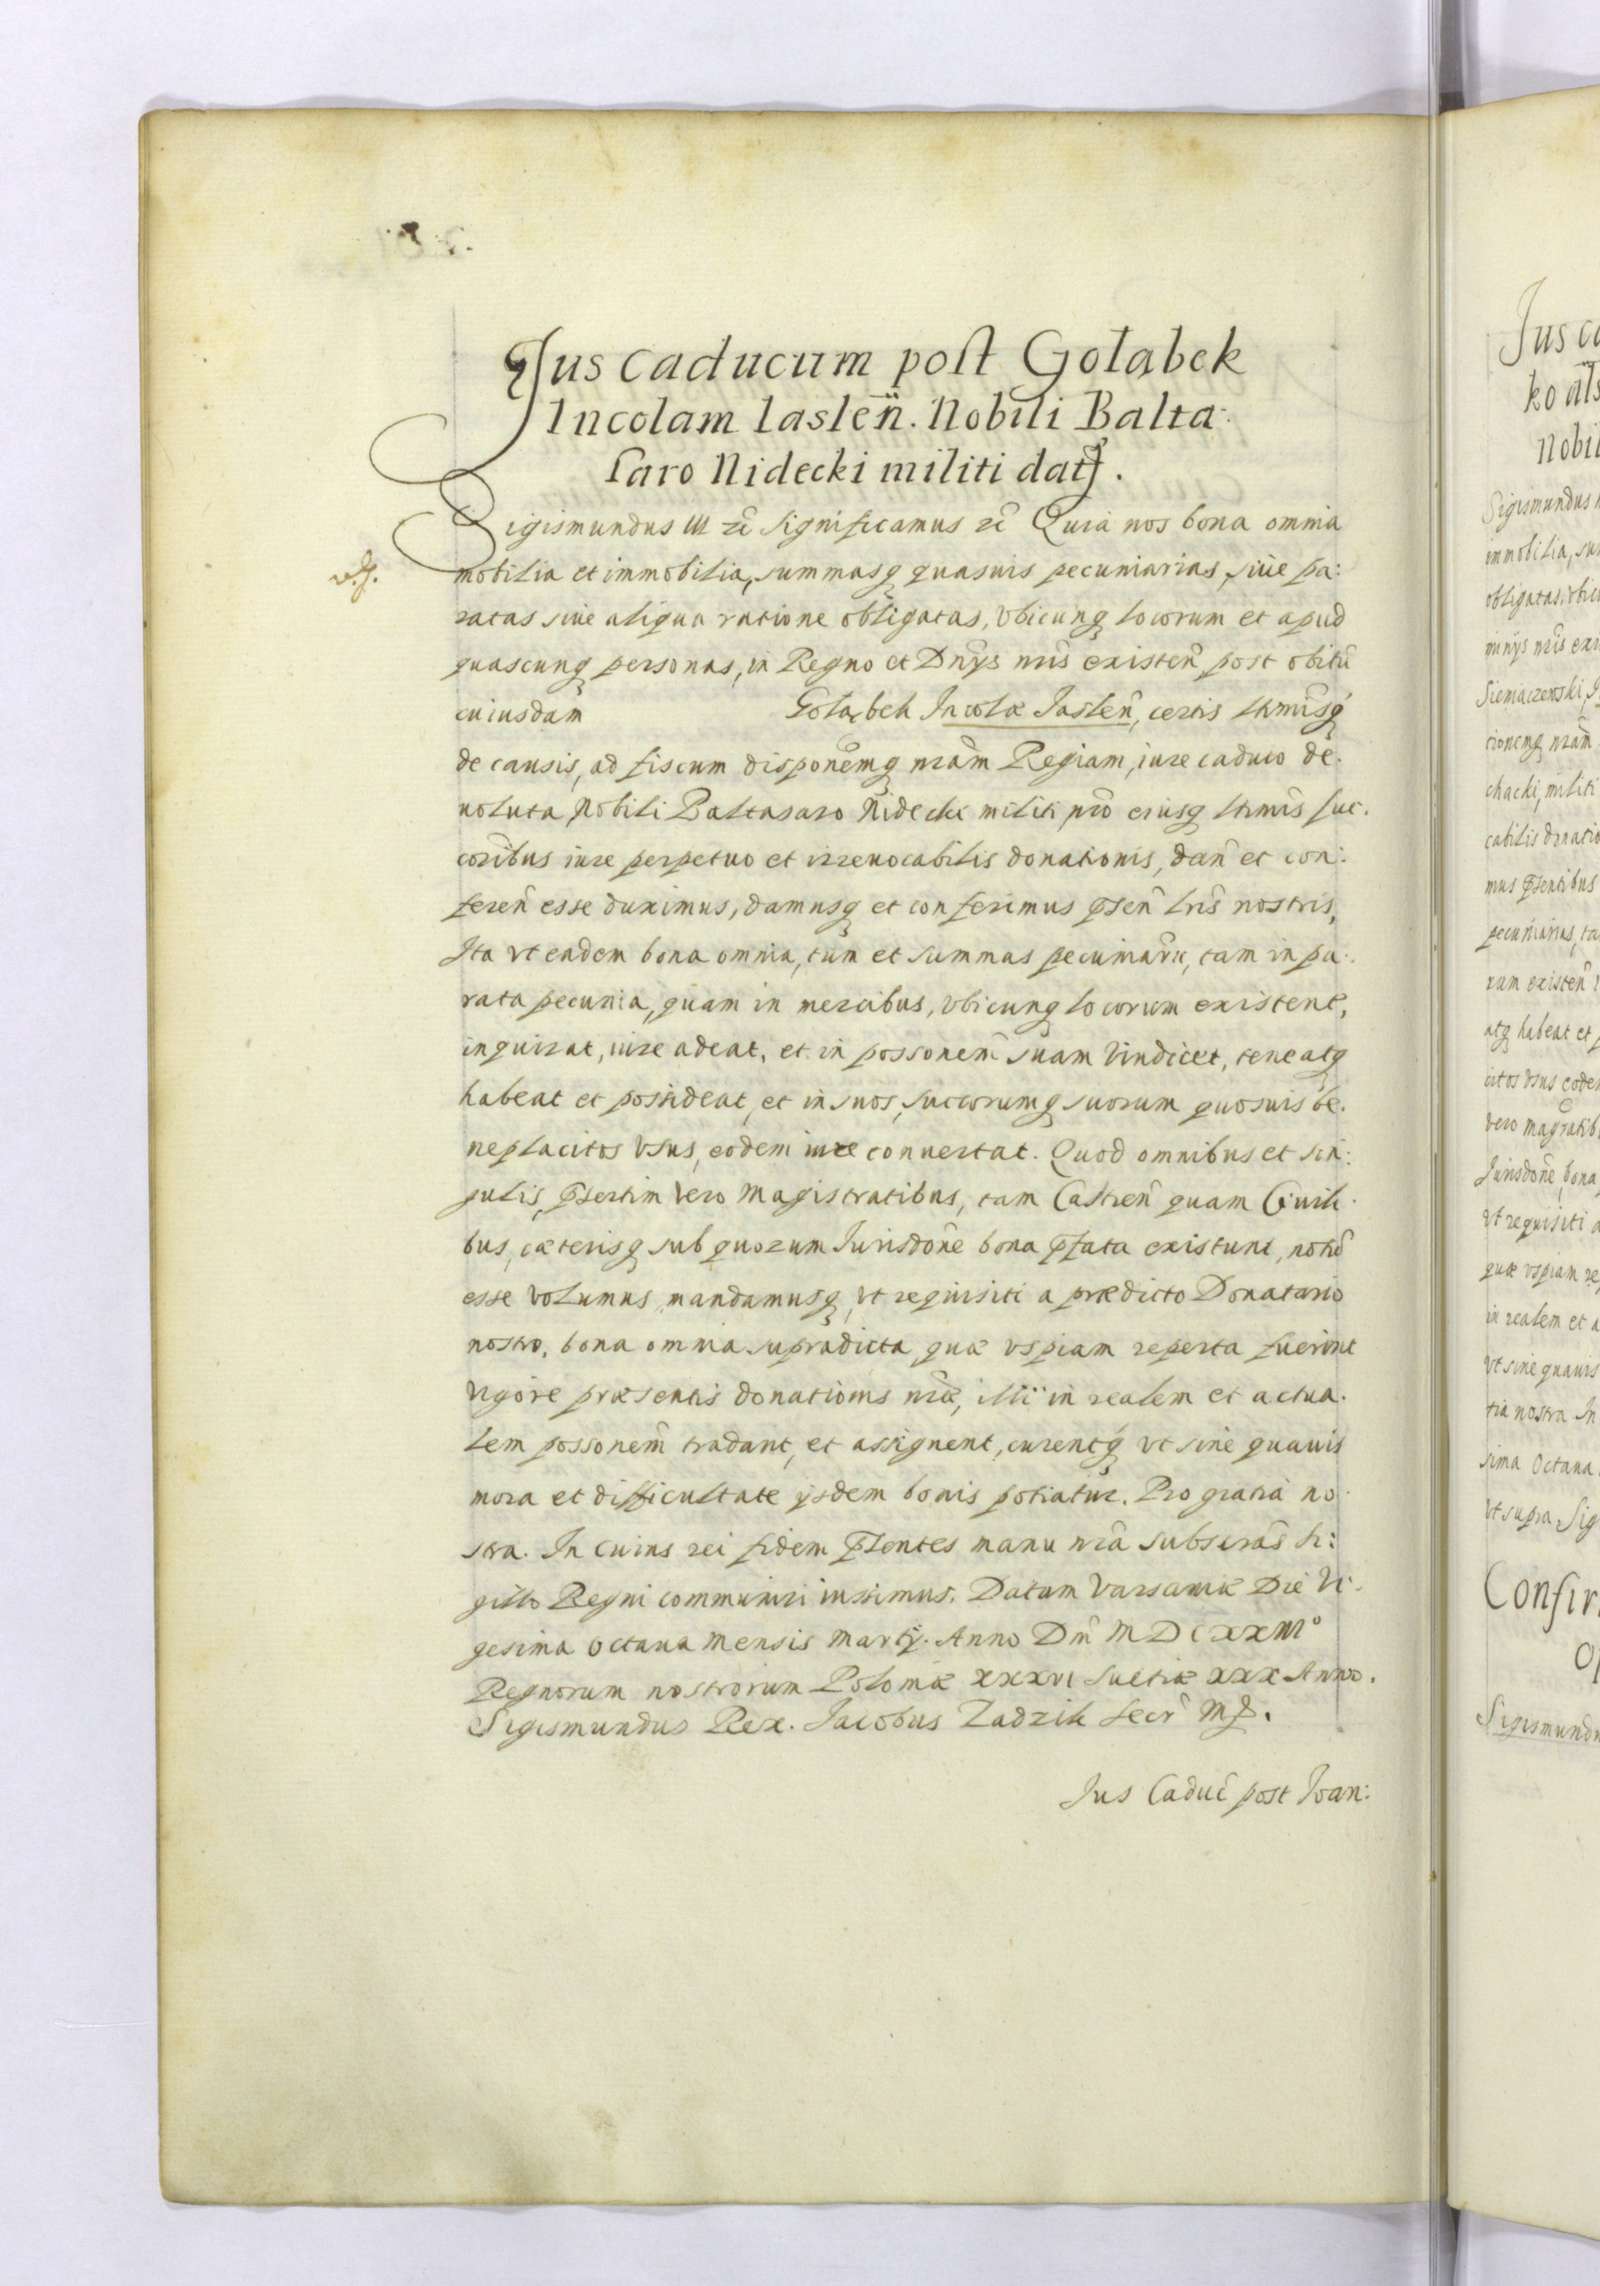 Jus caducum post Gołąbek
Incolam Iaslen̄. Nobili Balta:
saro Nidecki militi datꝭ.
Sigismundus III ꝛc̄ Significamus ꝛc̄ Quia nos bona omnia
mobilia et immobilia, summasq quasuis pecuniarias, siue pa:
ratas siue aliqua ratione obligatas, vbicunq locorum et apud
quascunq personas, in Regno et Dn̄ijs nr̄is existen̄, post obitū
cuiusdam Gołąbek Incolæ Iaslen̄, certis lt̄timisq
de causis, ad fiscum disponēmq nrām Regiam, iure caduco de:
uoluta, Nobili Baltasaro Nidecki militi nr̄o eiusq lt̄imis suc:
coribus iure perpetuo et irreuocabilis donationis, dan̄ et con:
feren̄ esse duximus, damusq et conferimus p̄sen̄ lr̄is nostris,
Ita vt eadem bona omnia, tum et summas pecuniār̄, tam in pa:
rata pecunia, quam in mercibus, vbicunq locorum existent,
inquirat, iure adeat, et in possonem̄ suam vindicet, teneatq
habeat et possideat, et in suos, succorumq suorum quosuis be:
neplacitos vsus, eodem iure conuertat. Quod omnibus et sin:
gulis, p̄sertim vero Magistratibus, tam Castren̄ quam Ciuili:
bus, cæterisq sub quorum Iurisdōne bona p̄fata existunt, notū
esse volumus, mandamusq, vt requisiti a prædicto Donatario
nostro, bona omnia supradicta, quæ vspiam reperta fuerint
vigore præsentis donationis nr̄æ, illi in realem et actua:
lem possonem̄ tradant, et assignent, curentq vt sine quauis
mora et difficultate ijsdem bonis potiatur. Pro gratia no:
stra. In cuius rei fidem p̄sentes manu nr̄a subscrās si:
gillo Regni communiri iussimus. Datum Varsauiæ Die Vi:
gesima octaua mensis Martij. Anno Dn̄i MDCXXIIIº
Regnorum nostrorum Poloniæ XXXVI Suetiæ XXX Anno.
Sigismundus Rex. Jacobus Zadzik Secr̄ Mp.
Jus Caduc̄ post Joan:
Jus ca
Nobil
Sigismundus
immobilia, su
Confir
Sigismundu